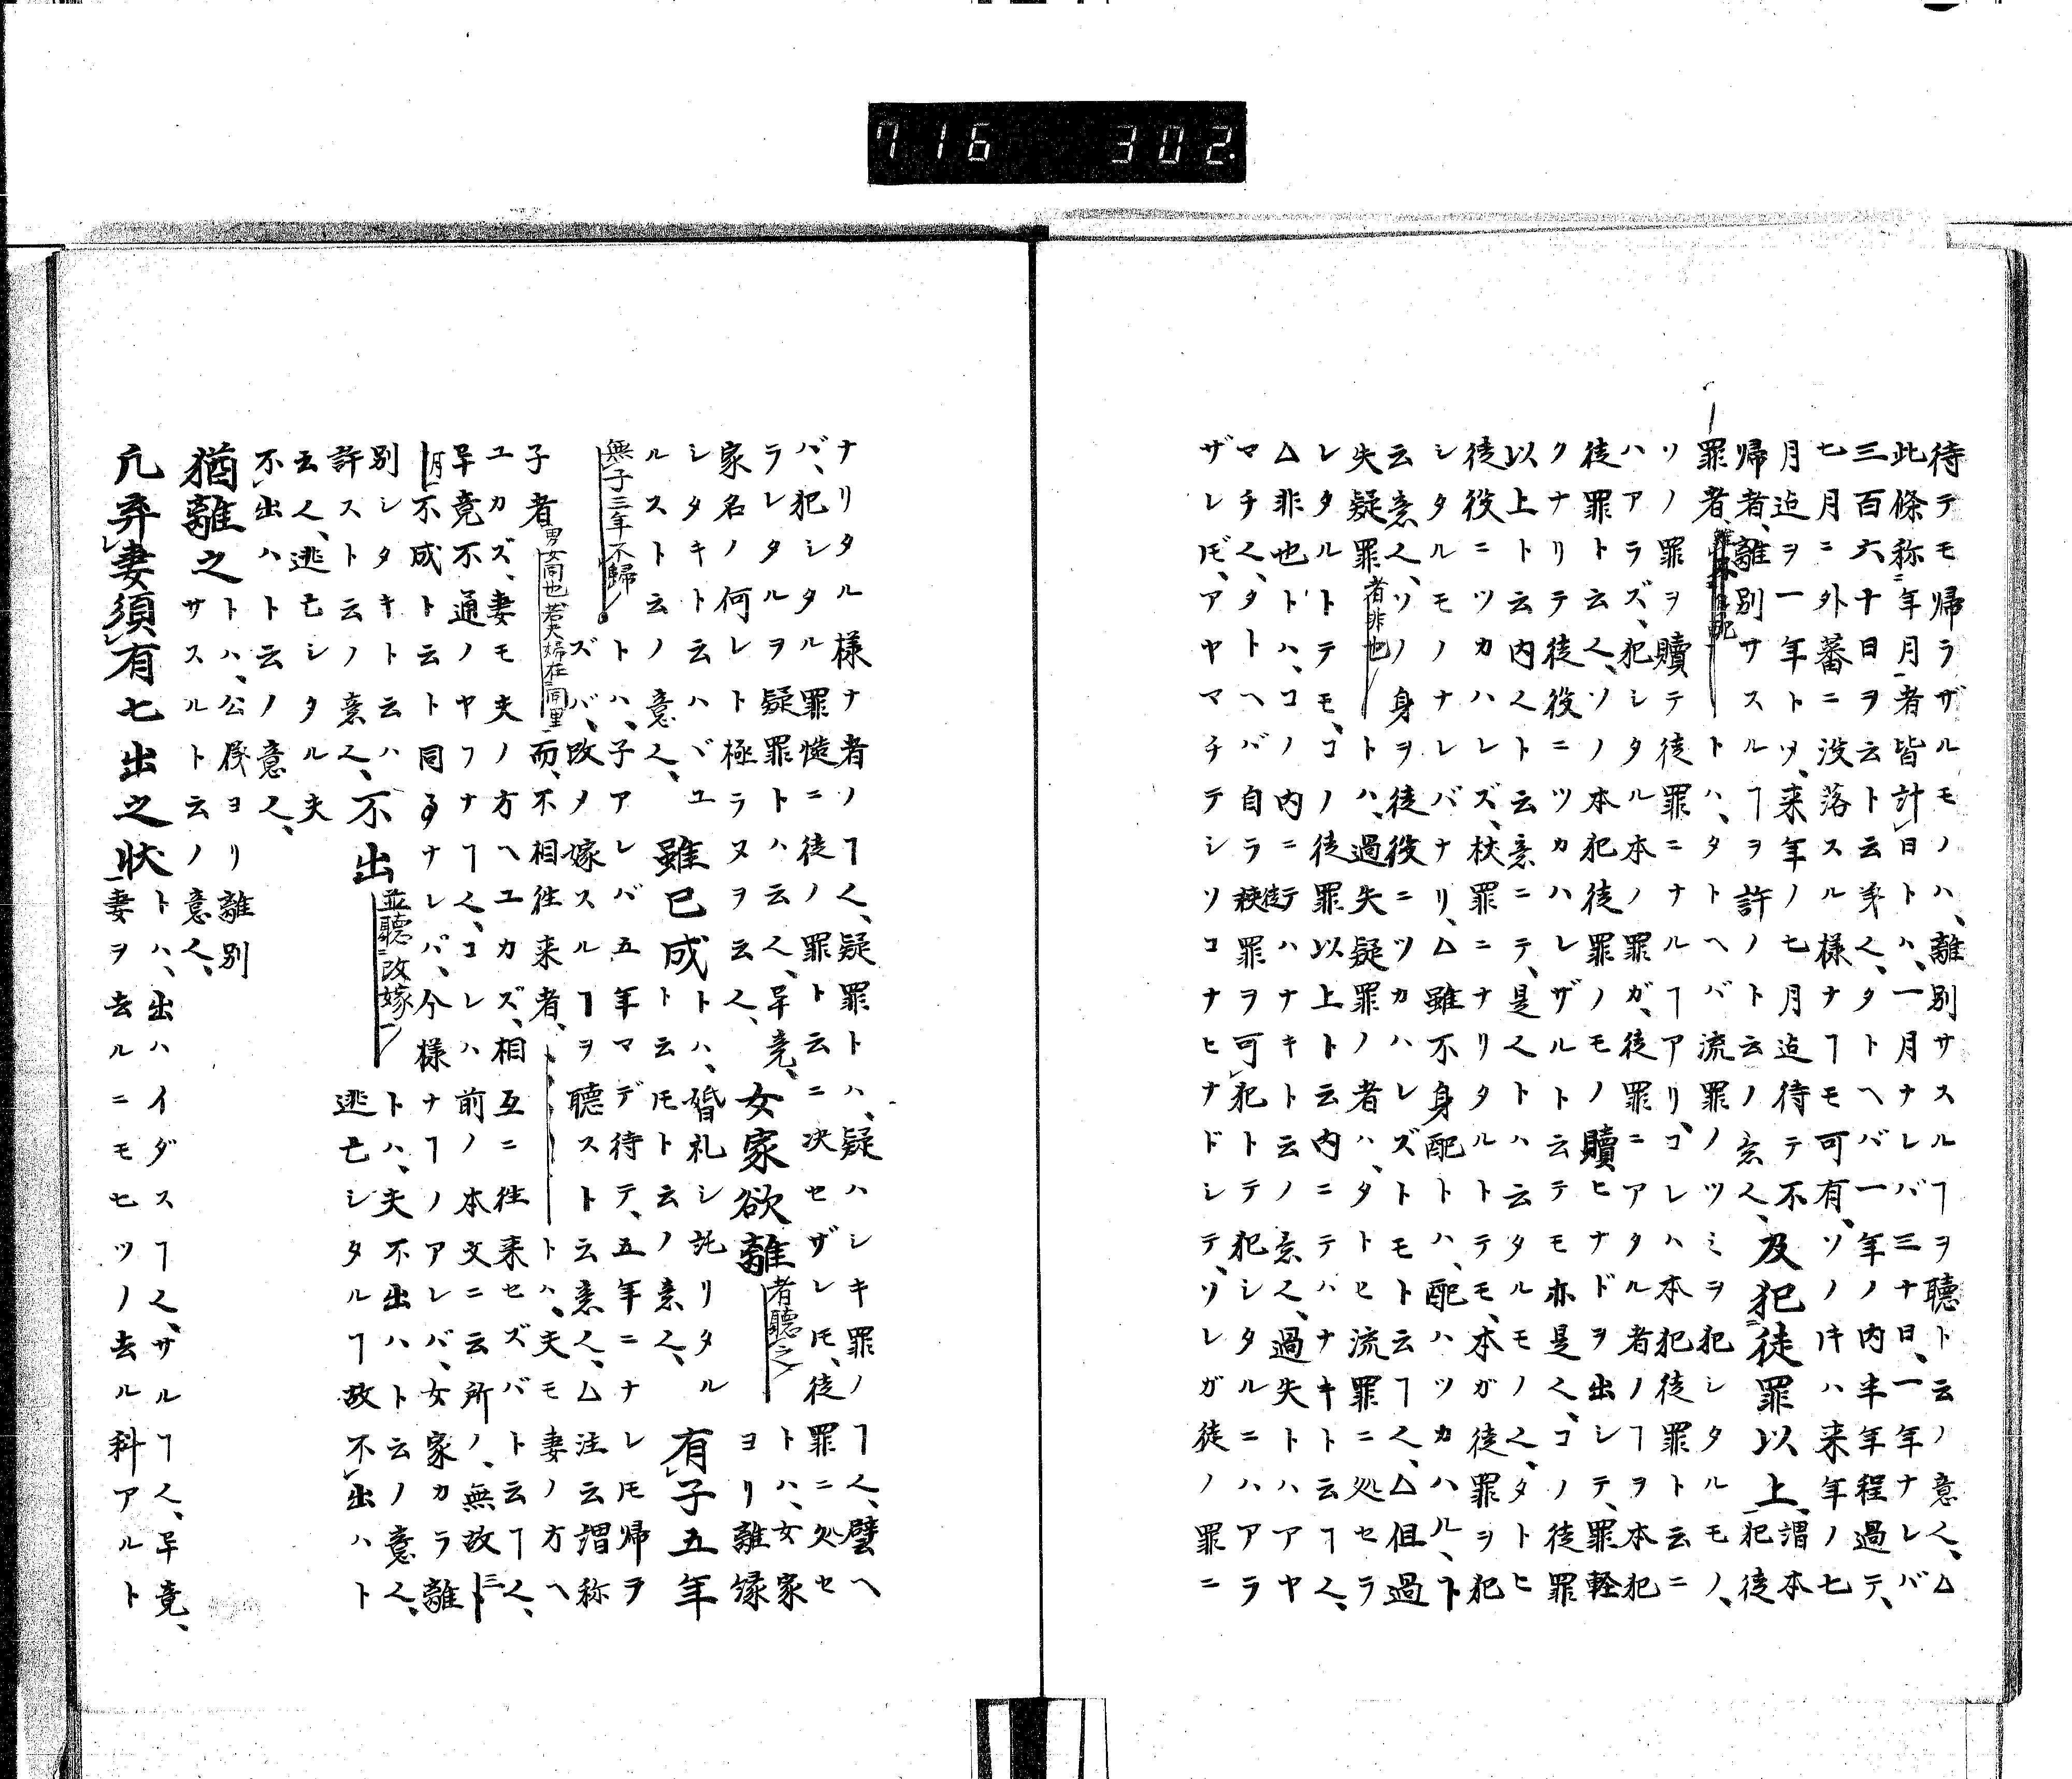 716 302
待テモ帰ラザルモノハ、離別サスルヿヲ聴ト云ノ意也、△
此條称年月者皆計日トハ、一月ナレバ三十日、一年ナレバ
三百六十日ヲ云ト云㐧也、タトヘバ一年ノ内半年程過テ、
七月ニ外蕃ニ没落スル様ナヿモ可有、ソノ𪜈ハ来年ノ七
月迠ヲ一年トソ、来年ノ七月迠待テ不 及犯徒罪以上、謂本
帰者、離別サスルヿヲ許ノト云ノ意也、 犯徒
罪者、 トハ、タトヘバ流罪ノツミヲ犯シタルモノ、
ソノ罪ヲ贖テ徒罪ニナルヿアリ、コレハ本犯徒罪ト云ニ
ハアラズ、犯シタル本ノ罪ガ、徒罪ニアタル者ノヿヲ本犯
徒罪ト云也、ソノ本犯徒罪ノモノ贖ヒナドヲ出シテ、罪軽
クナリテ徒役ニツカハレザルト云テモ亦是也、コノ徒罪
以上ト云内也ト云意ニテ、是也トハ云タルモノ也、タトヒ
徒役ニツカハレズ、杖罪ニナリタルトテモ、本ガ徒罪ヲ犯
シタルモノナレバナリ、△雖不身配トハ、配ハツカハル、ト
云意也、ソノ身ヲ徒役ニツカハレズトモト云ヿ也、△但過
失疑罪者非也トハ、過失疑罪ノ者ハ、タトセ流罪ニ処セラ
レタルトテモ、コノ徒罪以上ト云内ニテハナキト云ヿ也、
△非也トハ、コノ内ニテハナキト云ノ意也、過失トハアヤ
マチ也、タトヘバ自ラ徒罪ヲ可犯トテ犯シタルニハアラ
ザレ𪜈、アヤマチテシソコナヒナドシテ、ソレガ徒ノ罪ニ
ナリタル様ナ者ノヿ也、疑罪トハ、疑ハシキ罪ノヿ也、譬ヘ
バ、犯シタル罪慥ニ徒ノ罪ト云ニ决セザレ𪜈、徒罪ニ処セ
ラレタルヲ疑罪トハ云也、早竟、 女家欲離者聴之トハ、女家
家名ノ何レト極ラヌヲ云也、 ヨリ離縁
シタキト云ハヾ、ユ 雖已成トハ、婚礼シ訖リタル 有子五年
ルスト云ノ意也、 ト云𪜈ト云ノ意也、
無子三年不歸トハ、子アレバ五年マデ待テ、五年ニナレ𪜈帰ヲ
ズバ、改メ嫁スルヿヲ聴スト云意也、△注云謂称
子者男女同也若夫婦在同里而、不相徃来者、トハ、夫モ妻ノ方ヘ
ユカズ、妻モ夫ノ方ヘユカズ、相互ニ徃来セズバト云ヿ也、
早竟不通ノヤフナヿ也、コレハ前ノ本文ニ云所ノ、無故三
月不成ト云ト同事ナレバ、今様ナヿノアレバ、女家カラ離
別シタキト云ハ 不出並聽改嫁トハ、夫不出ハト云ノ意也、
許スト云ノ意也、 逃亡シタルヿ故不出ハト
云也、逃亡シタル夫
不出ハト云ノ意也、
猶離之トハ、公儀ヨリ離別
サスルト云ノ意也、
凡弃妻須有七出之状トハ、出ハイダスヿ也、サルヿ也、早竟、
妻ヲ去ルニモ七ツノ去ル科アルト